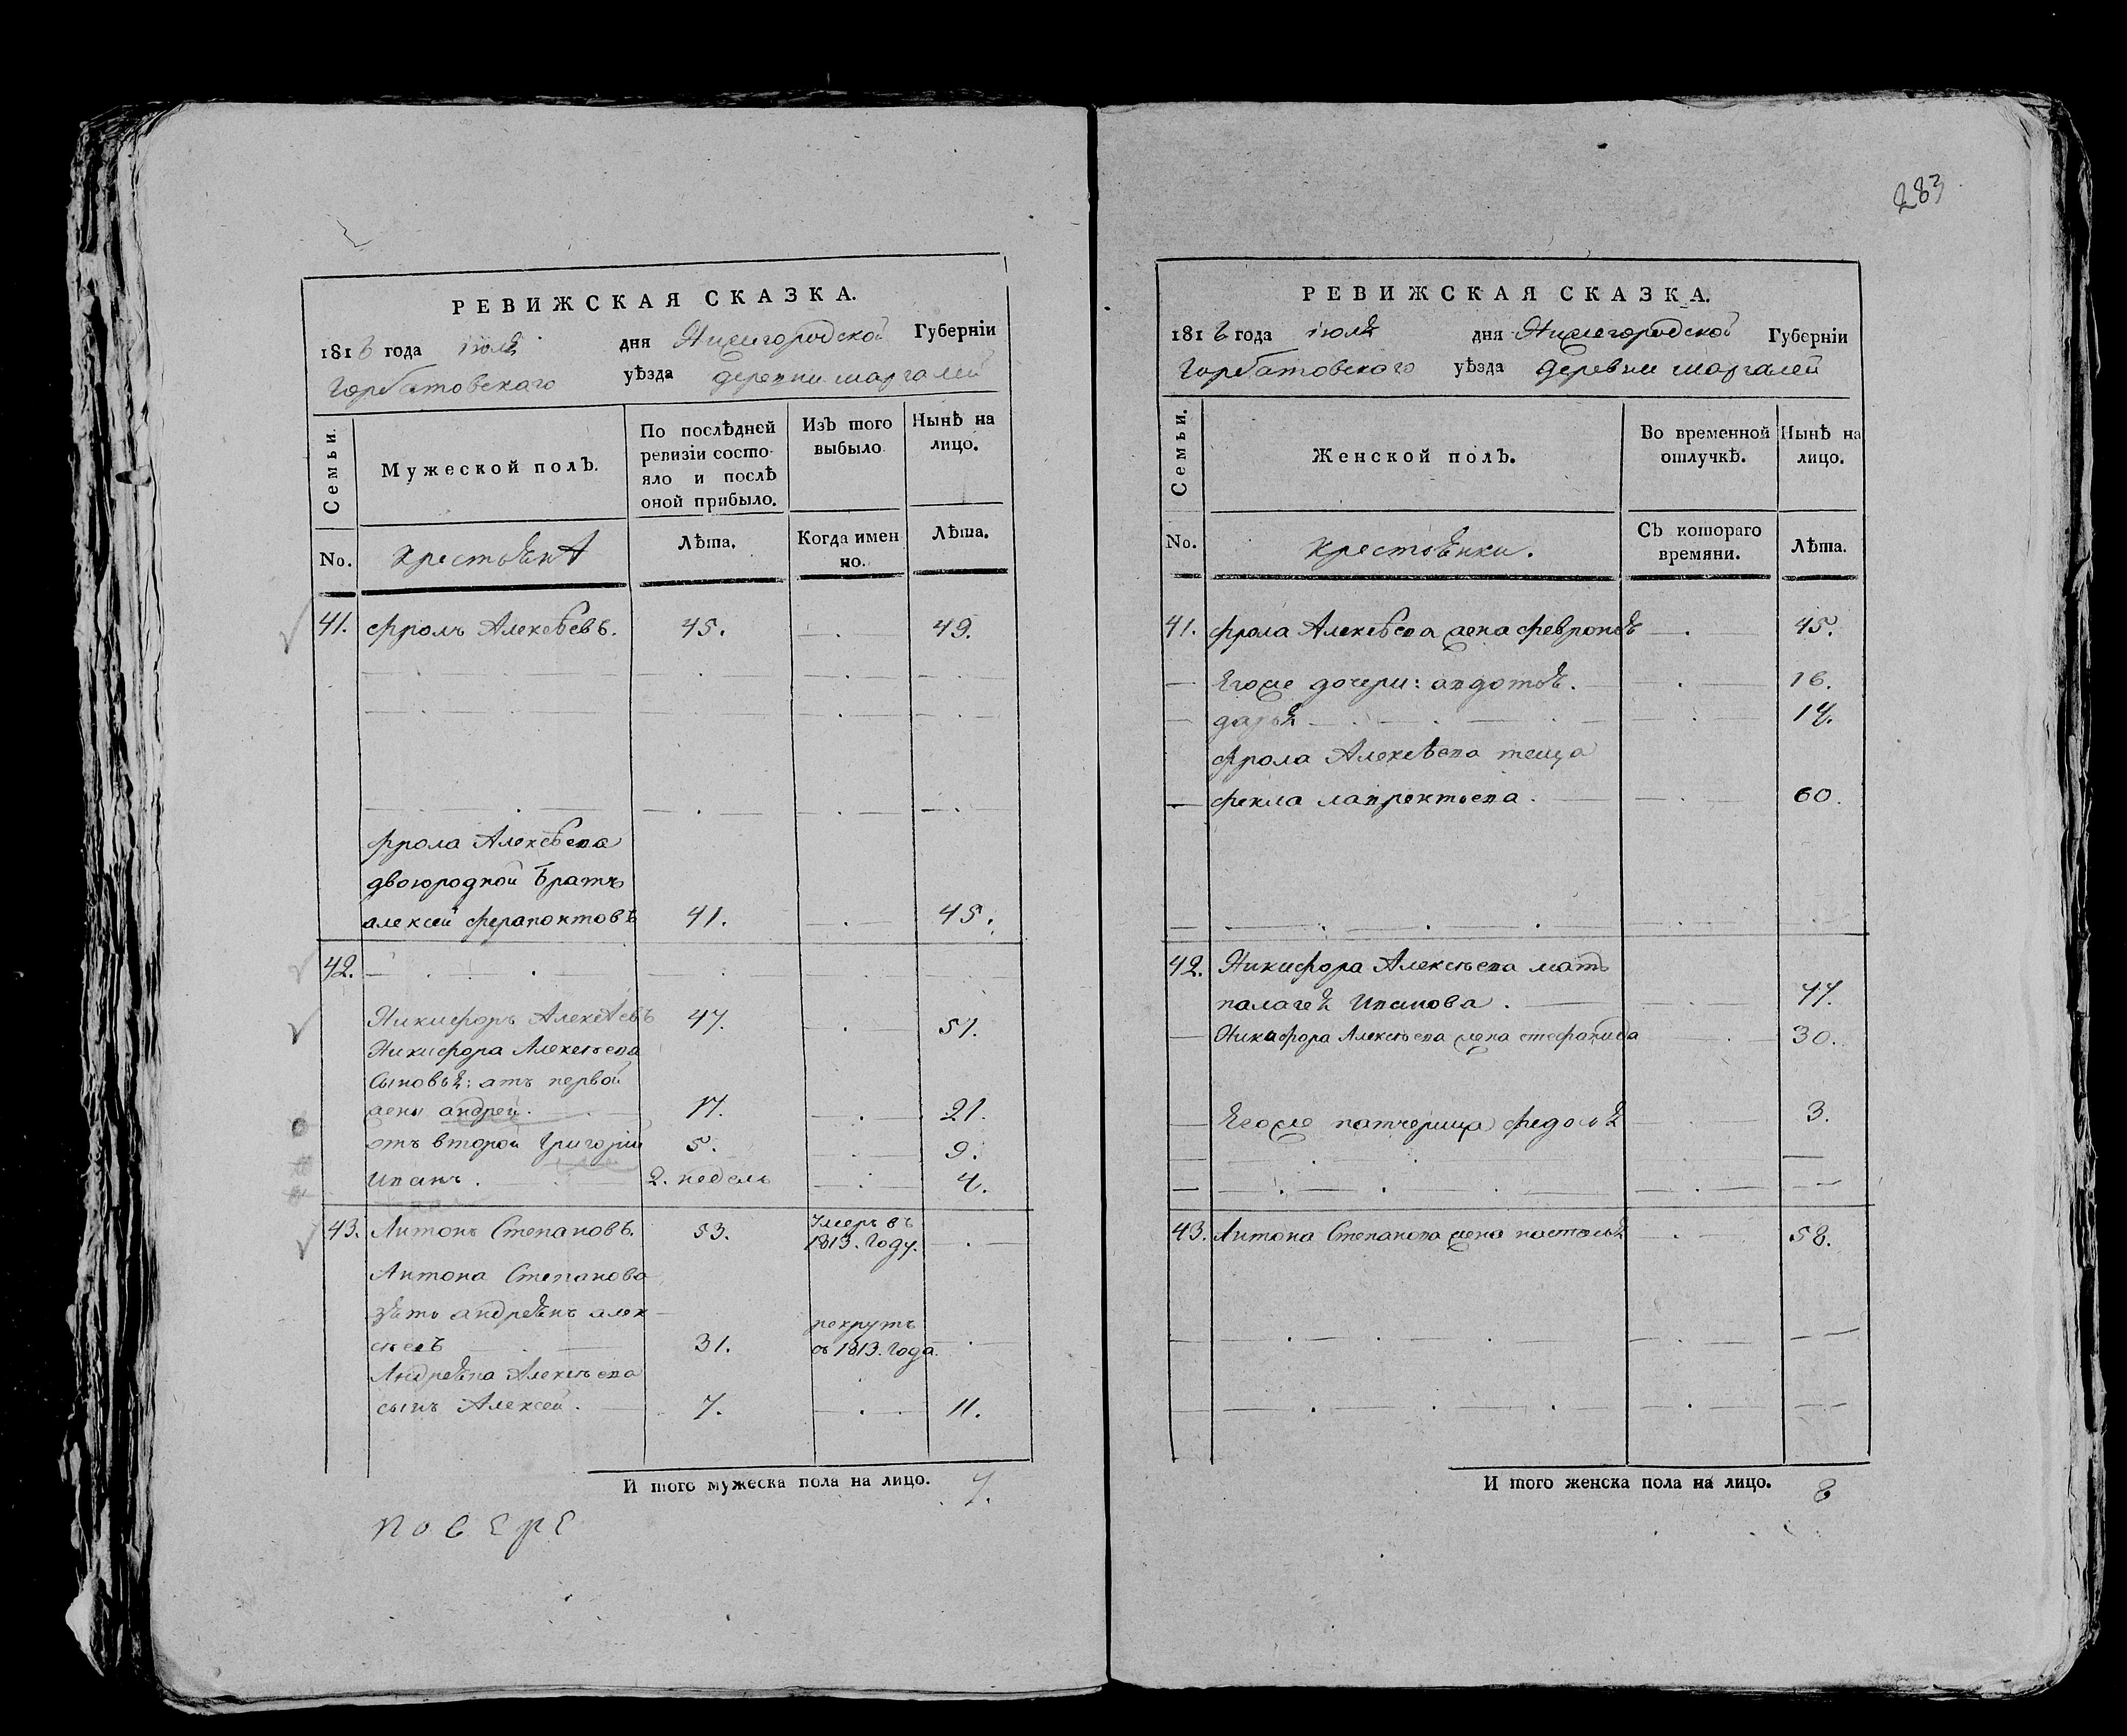 283
РЕВИЖСКАЯ СКАЗКА.
1816 года июля дня Нижегородской Губерніи
Горбатовскаго уѣзда деревни маргалей
Семьи.
Мужеской полъ.
По послѣдней ревизіи состо-
яло и послѣ
оной прибыло.
Изъ того
выбыло
Нынѣ на
лицо.
No.
крестьянѣ
Лѣта.
Когда имен
но.
Лѣта.
41. фролъ Алексѣевъ. 45. 49.
фрола Алексѣева
двоюродной братъ
алексей ферапонтовъ 41. 45.
42.
Никифоръ Алексѣевъ 47. 51.
Никифора Алексѣева
Сыновья: отъ первой
жены андрей. 17. 21.
отъ второй Григорій 5. 9.
иванъ. 2. недель 4.
43. Антонъ Степановъ. 53. умеръ въ
1813. году.
Антона Степанова
зять андреянъ алек
сѣевъ 31. рекрутъ
съ 1813. года.
Андреяна Алексѣева
сынъ Алексей. 7. 11.
И того мужеска пола на лицо. 7.
РЕВИЖСКАЯ СКАЗКА.
1816 года июля дня Нижегородской Губерніи
Горбатовскаго уѣзда деревни маргалей
Семьи.
Женской полъ.
Во временной
отлучкѣ.
Нынѣ на
лицо.
No.
крестьянки.
Съ котораго
времяни.
Лѣта.
41. фрола Алексѣева жена февронья 45.
Егоже дочери: авдотья. 16.
дарья 14.
фрола Алексѣева теща
фекла лаврентьева. 60.
42. Никифора Алексѣева мать
палагея Иванова. 77.
Никифора Алексѣева жена стефанида 30.
Егоже патчерица федосья 3.
43. Антона Степанова жена настасья 58.
И того женска пола на лицо. 8